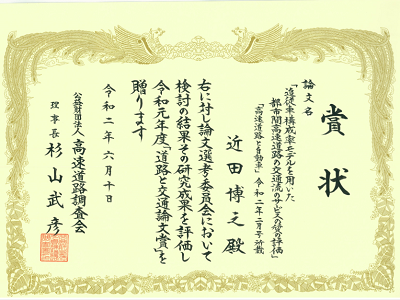 賞状
論文名
「追従車構成率モデルを用いた
都市間高速道路の交通流のサービスの質の評価」
「高速道路と自動車」 令和二年二月号所載
近田博之殿
右に対し論文選考委員会において
検討の結果その研究成果を評価し
令和元年度「道路と交通論文賞」を
贈ります
令和二年六月十日
公益財団法人 高速道路調査会
理事長 杉山武彦